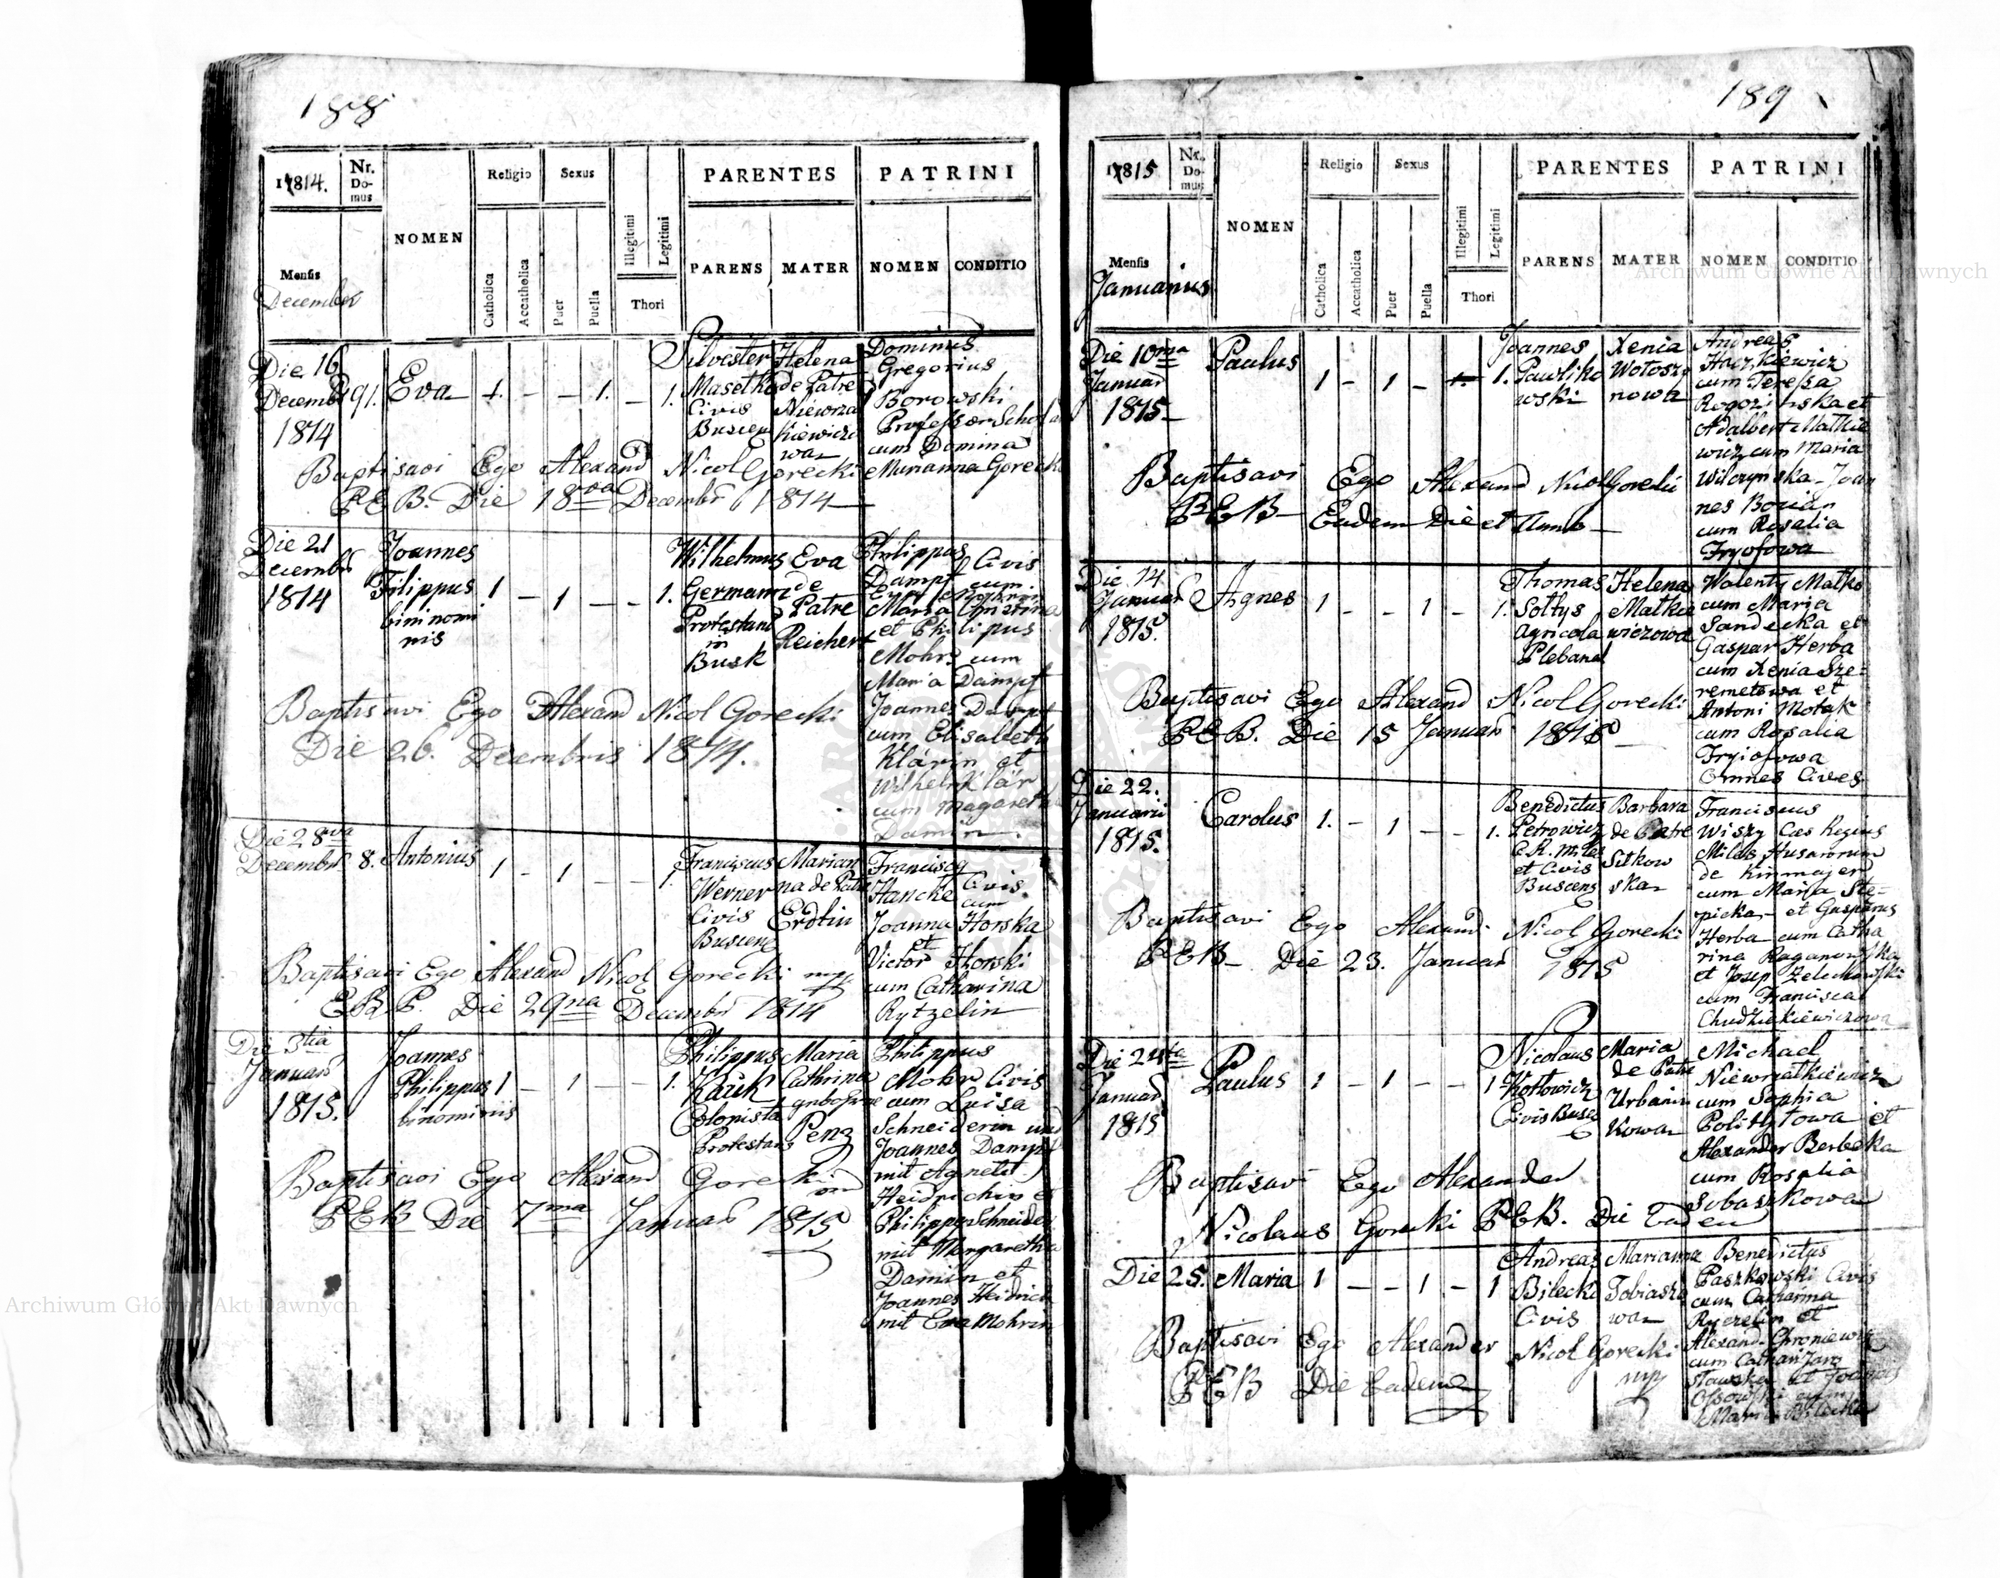 188
1814.
Nr. Domus
NOMEN
Religio
Sexus
PARENTES
PATRINI
Mensis
December
Catholica
Accatholica
Puer
Puella
Illegitimi
Legitimi
Thori
PARENS
MATER
NOMEN
CONDITIO
Die 16
Decembr 91.
1814
Eva
1. - - 1. - 1.
Silvester
Masetka
Civis
Buscen
Helena
de Patre
Niewrza
kiewiczo
wa
Dominus
Gregorius
Borowski
Professor Schola
cum Domina
Marianna Gorecki
Baptisavi Ego Alexand Nicol Gorecki
P E B. Die 18va Decembr 1814
Die 21
Decembr
1814
Joannes
Filippus
binnomi
nis
1 - 1 - - 1.
Wilhelmus
Germani
Protestand
in
Busk
Eva
de
Patre
Reichert
Philippus Civis
Dampf cum
Maria Christina
et Philipus
Mohr cum
Maria Dampf
Joannes Dampf
cum Elisabeth
Klärin et
Wilhelm Klär
cum Magaretha
Damin.
Baptisavi Ego Alexand Nicol Gorecki
Die 26. Decembris 1814.
Die 28va
Decembr 8.
Antonius
1 - 1 - - 1.
Franciscus
Werner
Civis
Buscens
Marian
na de Patre
Erdtin
Franciscq
Hancke Civis
cum
Joanna Horska
et
Victor Horski
cum Catharina
Rytzelin
Baptisavi Ego Alexand Nicol Gorecki mp
E B P. Die 29na Decembr 1814
Die 3tia
Januar
1815.
Joannes
Philippus
binominis
1 - 1 - - 1.
Philippus
Kauk
Colonista
Protestans
Maria
Cathrina
gebohrne
Penz
Philippus
Mohr Civis
cum Luisa
Schneiderin und
Joannes Dampf
mit Agnetu
Heidrichin et
Philipp Schneider
mit Margaretha
Damin et
Joannes Heidrich
mit Eva Mohrin
Baptisavi Ego Alexand Gorecki
P E B Die 7ma Januar 1815
189
1815
Nr. Domus
NOMEN
Religio
Sexus
PARENTES
PATRINI
Mensis
Januarius
Catholica
Accatholica
Puer
Puella
Illegitimi
Legitimi
Thori
PARENS
MATER
NOMEN
CONDITIO
Die 10ma
Januar
1815
Paulus
1 - 1 - 1. 1.
Joannes
Pawliko
wski
Xenia
Wołoszy
nowa
Andreas
Hackiewicz
cum Teressa
Rogozinska et
Adalbert Matkie
wicz cum Maria
Wilczynska Joan
nes Bocian
cum Rosalia
Fryofowa
Baptisavi Ego Alexand Nicol Gorecki
P E B Eadem Die et Anno
Die 14
Januar
1815.
Agnes
1 - - 1 - 1.
Thomas
Soltys
agricola
Plebanal
Helena
Matkie
wiczowa
Walenty Matko
cum Maria
Sandecka et
Gaspar Herba
cum Xenia Sze=
remetowa et
Antoni Motak
cum Rosalia
Fryiofowa
Omnes Cives
Baptisavi Ego Alexand Nicol Gorecki
P E B. Die 15 Januar 1815
Die 22.
Januarii
1815.
Carolus
1. - 1 - - 1.
Benedictus
Petrowicz
C. R. Miles
et Civis
Buscens
Barbara
de Patre
Sitkow
ska
Franciscus
Wiszy Caes Regius
Miles Husarorum
de Kinmajer
cum Maria Ste=
picka et Gasparus
Herba cum Catha
rina Kaganowska
et Josep Zelechowski
cum Francisca
Chudzikiewiczowa
Baptisavi Ego Alexand. Nicol Gorecki
P E B Die 23. Januar 1815
Die 24ta
Januar
1815
Paulus
1 - 1 - - 1
Nicolaus
Kottowicz
Civis Busc
Maria
de Patre
Urbanin
kowa
Michael
Niewrzatkiewicz
cum Sophia
Politytowa et
Alexander Berbecka
cum Rosalia
Sobaszkowa
Baptisavi Ego Alexander
Nicolaus Gorecki P E B. Die Eadem
Die 25. Maria
1 - - 1. - 1
Andreas
Bilecki
Civis
Marianna
Tobiaszo
wa
Benedictus
Paszkowski Civis
cum Catharina
Ryczelin et
Alexand Chroniewicz
cum Cathari Jaro
sławska et Joannis
Ossowski cum
Maria Bilecka
Baptisavi Ego Alexander Nicol Gorecki
P E B Die Eadem mp
Archiwum Główne Akt Dawnych
Archiwum Główne Akt Dawnych